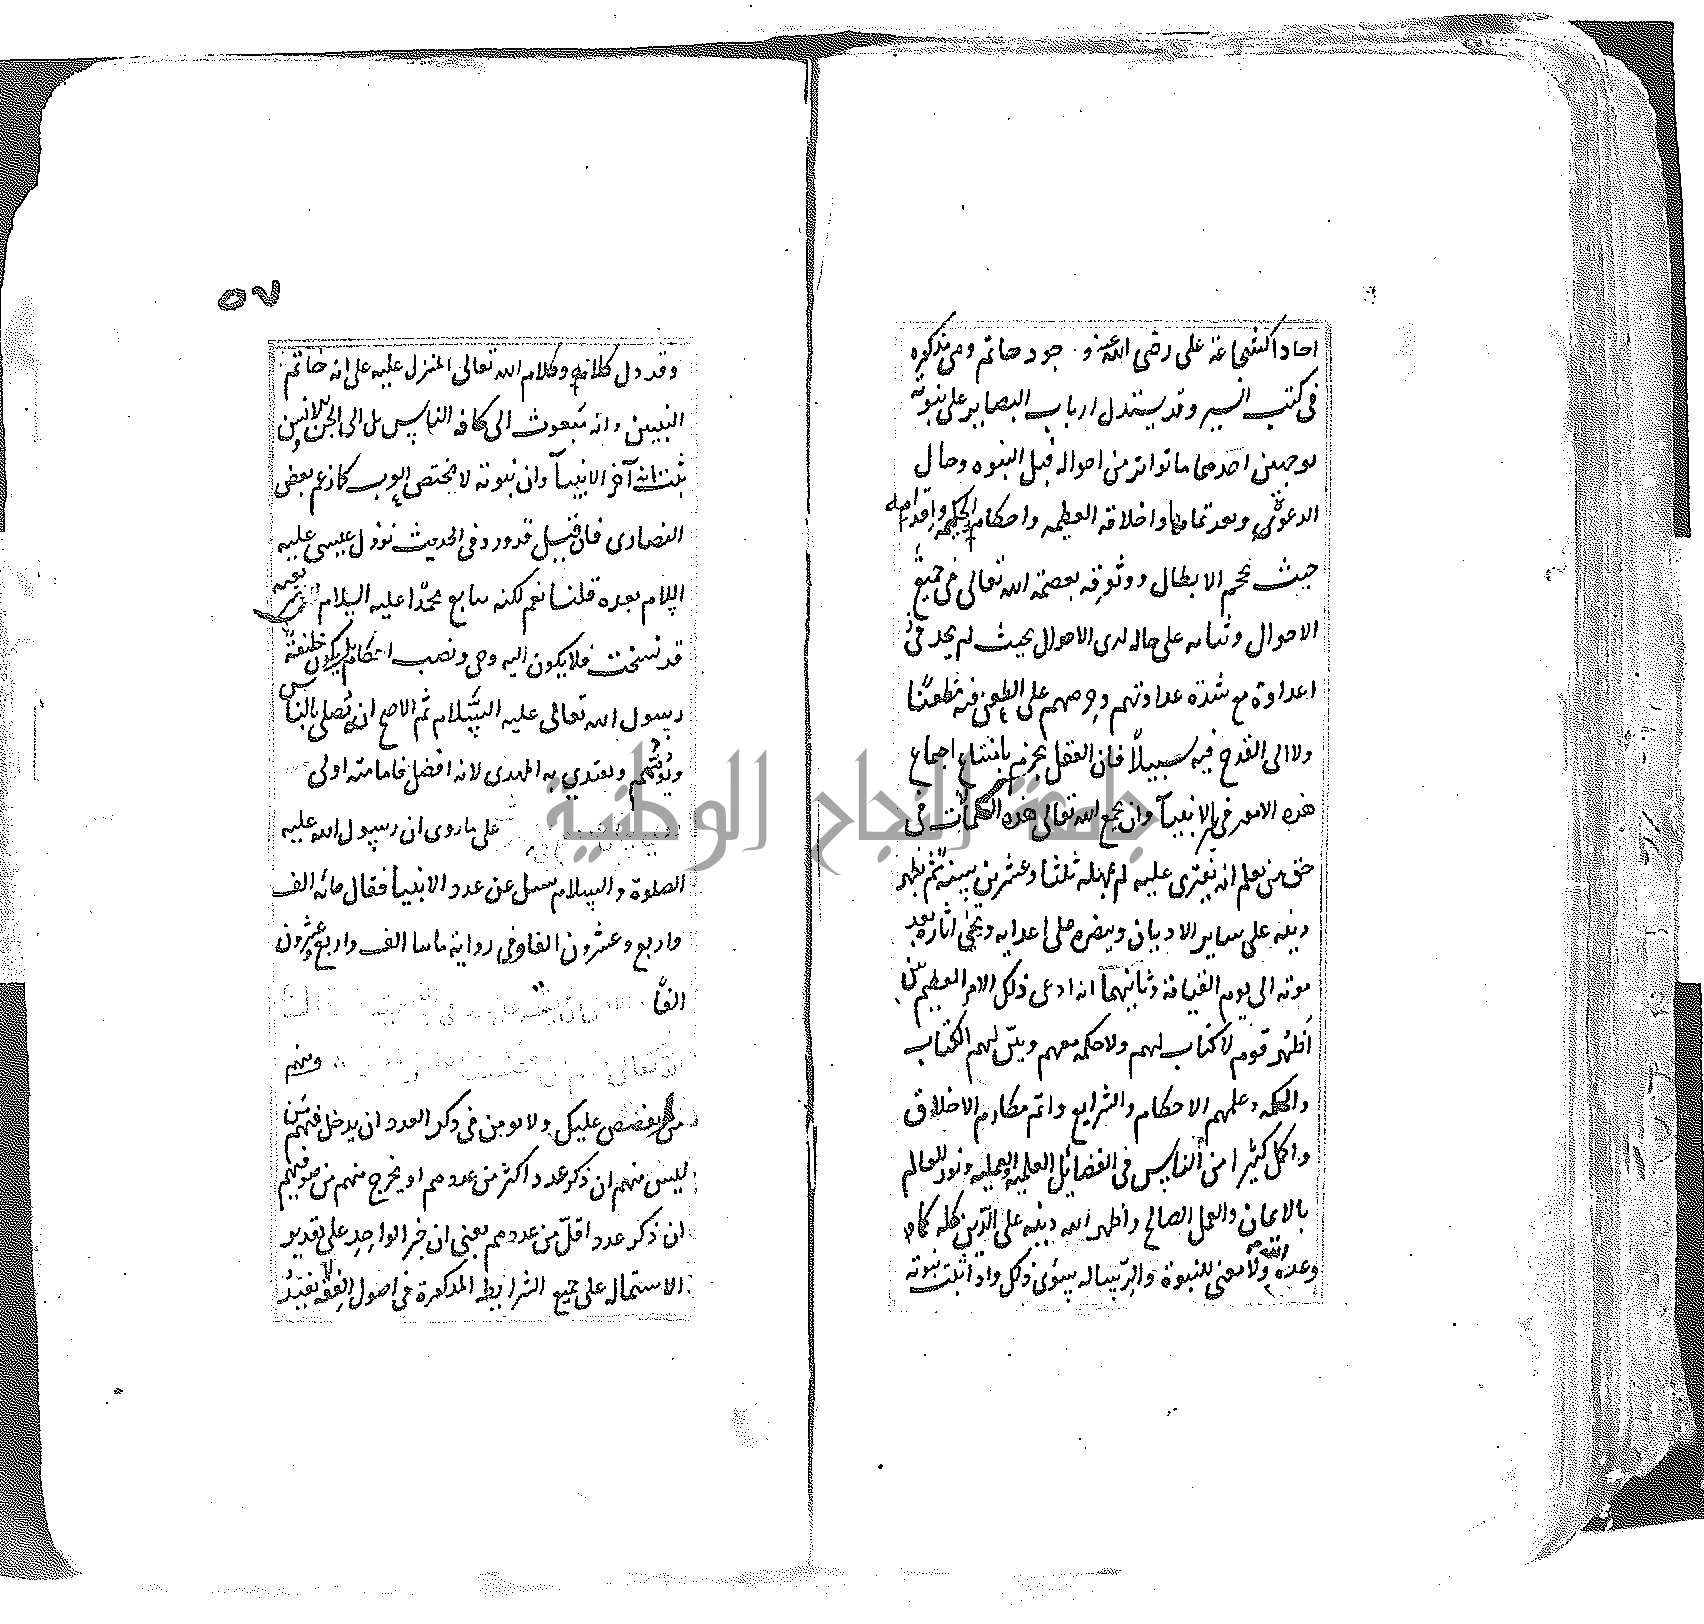 احادا كشجاعة على رضى الله عنه و جود حاتم وهى مذكوره
فى كتب السير وقد يستدل ارباب البصاير على نبوته
بوجهين احدهما ما تواتر من احواله قبل النبوه وحال
الدعوة وبعد تمامها واخلاقه العظيمه واحكامه الحكيمه واقدامه
حيث يحجم الابطال ووثوقه بعصمة الله تعالى فى جميع
الاحوال وثباته على حاله لدى الاهوال بحيث لم يجد
اعداوه مع شدة عداوتهم وحرصهم على الطعن فيه مطعنا
ولا الى القدح فيه سبيلاً فان العقل يجزم بامتناع اجتماع
هذه الامور فى غير الانبيآ وان يجمع الله تعالى هذه الكمالات فى
حق من يعلم انه يفترى عليه ثم يمهله ثلثا وعشرين سنة ثم يظهر
دينه على ساير الاديان وينصره على اعدايه ويحيى اثاره بعد
موته الى يوم القيامة وثانيهما انه ادعى ذلك الامر العظيم بين
أظهُر قوم لا كتاب لهم ولا حكمة معهم وبيّن لهم الكتاب
والحكمه وعلمهم الاحكام والشرايع واتم مكارم الاخلاق
واكمل كثيرا من الناس فى الفضائل العلميه والعمليه ونور العالم
بالايمان والعمل الصالح واظهر الله دينه على الدّين كله كما
وعده الله ولا معنى للنبوة والرساله سوى ذلك واذا ثبت نبوته
٥٧
وقد دل كلامه وكلام الله تعالى المنزل عليه على انه خاتم
النبيين وانه مبعوث الى كافه الناس بل الى الجن والانس
ثبت انه آخر الانبيآ وان نبوته لا تختص بالعرب كما زعم بعض
النصارى فان قيل قد ورد فى الحديث نزول عيسى عليه
السلام بعده قلنا نعم لكنه يتابع محمّدا عليه السلام لان شريعته
قد نسخت فلا يكون اليه وحى ونصب احكام بل يكون خليفة
رسول الله تعالى عليه السّلام ثم الاصح انه يُصلى بالناس
ويُؤمّهم ويقتدي به المهدى لانه افضل فامامته اولى
على ما روى ان رسول الله عليه
الصلوة والسلام سيل عن عدد الانبيا فقال مائه الف
واربع وعشرون الفا وفى رواية مايتا الف واربع وعشرون
الفًا
ومنهم
من لم يقصص عليك ولا يومن فى ذكر العدد ان يدخل فيهم من
ليس منهم ان ذكر عدد اكثر من عددهم او يخرج منهم من هو فيهم
ان ذكر عدد اقلّ من عددهم يعنى ان خبر الواحد على تقدير
الاشتمال على جميع الشرايط المذكورة فى اصول الفقه لا يفيد
جامعة النجاح الوطنية